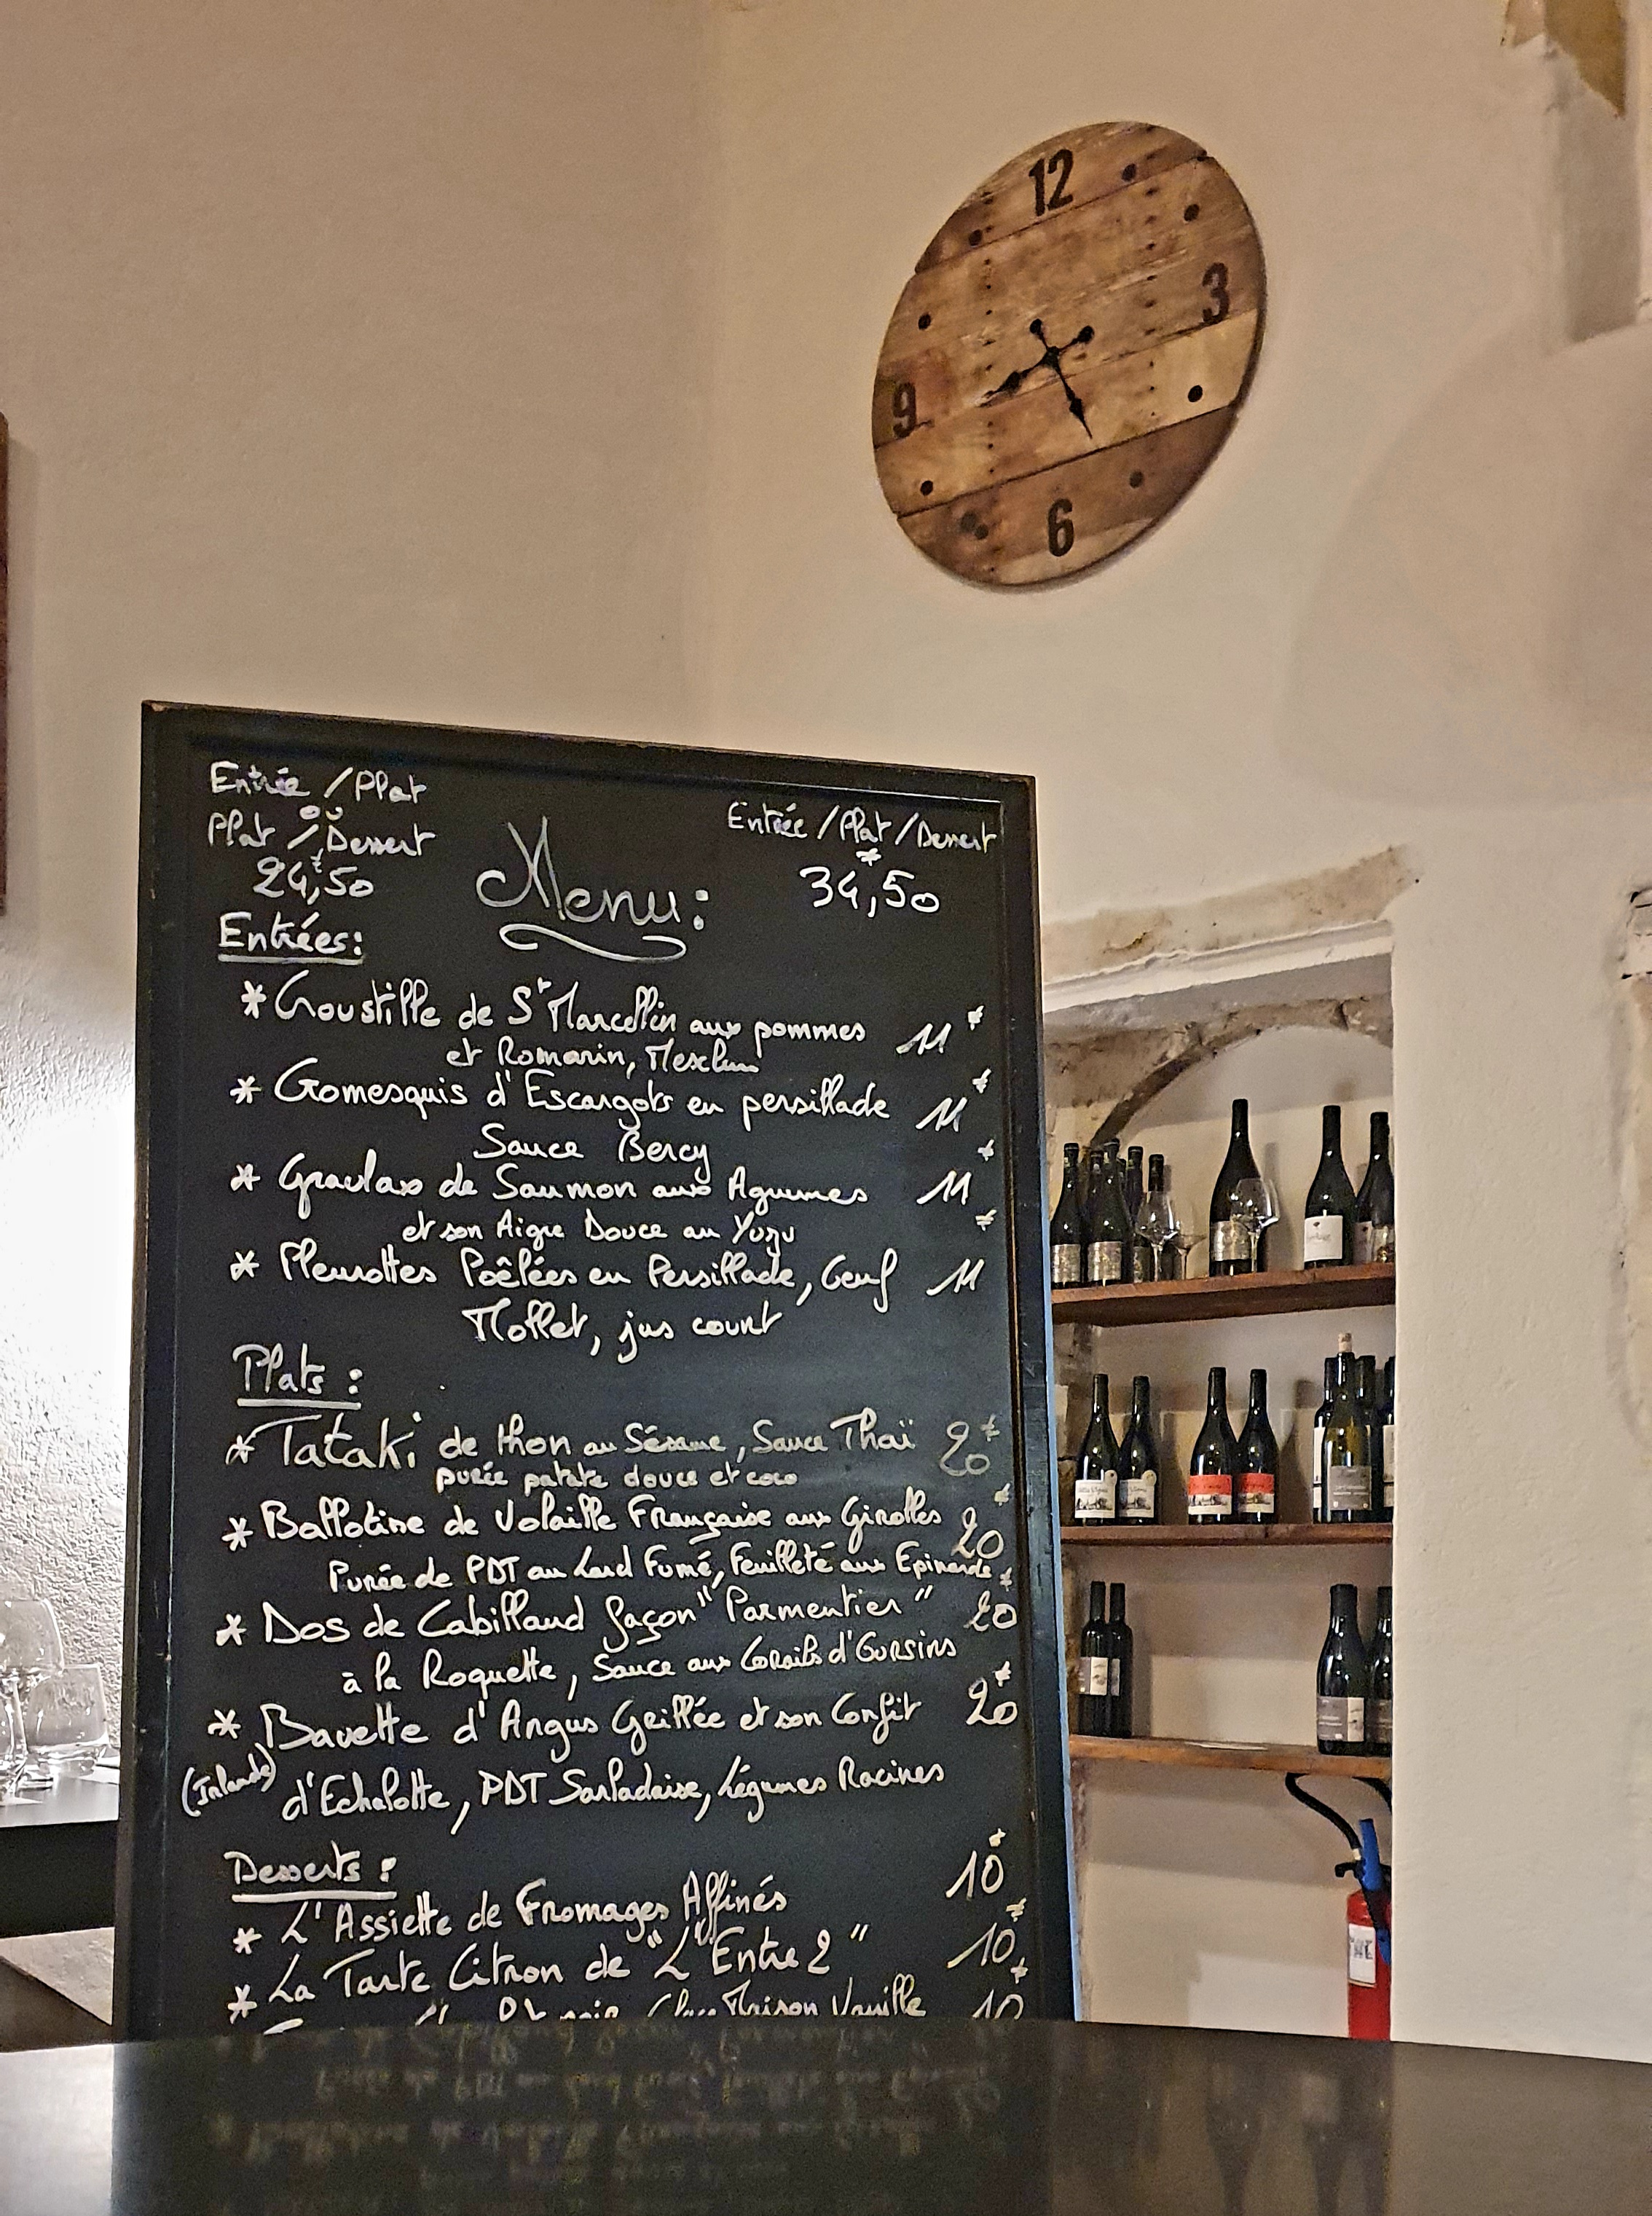 12
3
9
6
Entrée / Plat
ou
Plat / Dessert
24,50
Menu:
Entrée / Plat / Dessert
34,50
Entrées:
* Croustille de St Marcellin aux pommes 11
et Romarin, Mesclun
* Cromesquis d'Escargots en persillade 11
Sauce Bercy
* Gravlax de Saumon aux Agrumes 11
et son Aigre Douce au Yuzu
* Pleurottes Poêlées en Persillade, Oeuf 11
Mollet, jus court
Plats :
* Tataki de thon au Sésame, Sauce Thaï 20
purée patate douce et coco
* Ballotine de Volaille Française aux Girolles 20
Purée de PDT au Lard Fumé, Feuilleté aux Epinards
* Dos de Cabillaud façon "Parmentier" 20
à la Roquette, Sauce aux Corails d'Oursins
* Bavette d'Angus Grillée et son Confit 20
(Irlande) d'Echalotte, PDT Sarladaise, Légumes Racines
Desserts :
* L'Assiette de Fromages Affinés 10
* La Tarte Citron de "L'Entre 2" 10
Maison Vanille 10